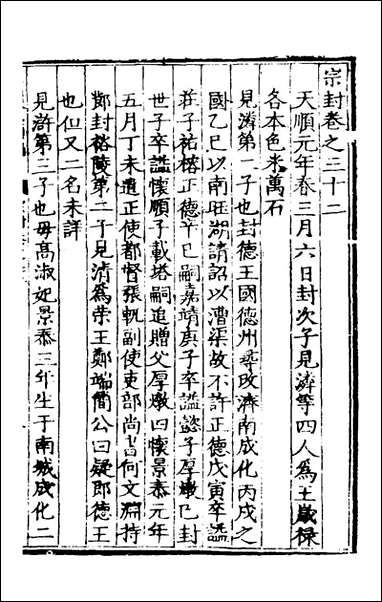 宗封卷之三十二
天順元年春三月六日封次子見潾等四人爲王歲祿
各本色米萬石
見潾第一子也封德王國德州尋改濟南成化丙戌之
國乙巳以南旺湖請詔以漕渠故不許正德戊寅卒謚
莊子祐榕正德辛巳嗣嘉靖庚子卒謚懿子厚燉已封
世子卒謚懷順子載塔嗣追贈父厚燉曰懷景泰元年
五月丁未遣正使都督張軏副使吏部尚書何文淵持
鄭封裕陵第二子見清爲荣王鄭端簡公曰疑即德王
也但又二名未詳
見澍第三子也毋高淑妃景泰三年生于南城成化二